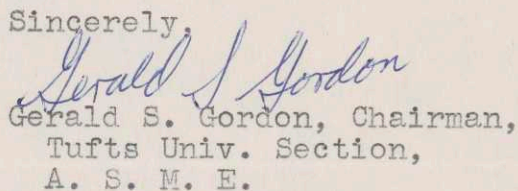 Sincerely,
Gerald S Gordon
Gerald S. Gordon, Chairman,
Tufts Univ. Section,
A. S. M. E.